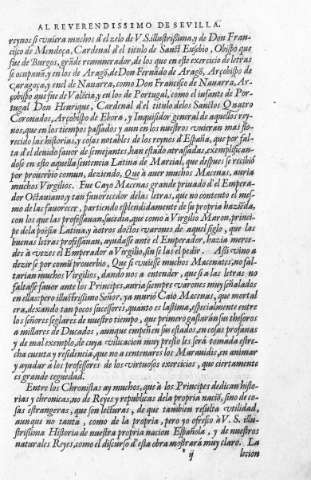 AL REVERENDISSIMO DE SEVILLA.
reynos si vuiera muchos d'el zelo de V.S.illustrissima, y de Don Fran-
cisco de Mendoça, Cardenal d'el titulo de Sanct Eusebio, Obispo que
fue de Burgos, grande remunerador, de los que en este exercicio de letras
se ocupauã, y en los de Aragõ, de Don Fernãdo de Aragõ, Arçobispo de
Çaragoça, y en el de Nauarra, como Don Francisco de Nauarra, Ar-
çobispo que fue de Valẽcia, y en los de Portugal, como el infante de Por-
tugal Don Henrique, Cardenal d'el titulo delos Sanctos Quatro
Coronados, Arçobispo de Ebora, y Inquisidor general de aquellos rey-
nos, que en los tiempos passados y aun en los nuestros vuieran mas flo-
recido las historias, y cosas notables de los reynos d'España, que por fal-
ta d'el deuido fauor de semejantes, han estado atrasadas, exemplifican-
dose en esto aquella sentencia Latina de Marcial, que despues se recibio
por prouerbio comun, deziendo, Que à auer muchos Mecenas, auria
muchos Virgilios. Fue Cayo Mecenas grande priuado d'el Empera-
dor Octauiano, y tan fauorecedor delas letras, que no contento el mes-
mo de las fauorecer, partiendo esplendidamente de su propria hazienda,
con los que las professauan, sucedia, que como à Virgilio Maron, princi-
pe dela poësia Latina, y à otros doctos varones de aquel siglo, que las
buenas letras professauan, ayudasse ante el Emperador, hazia merce-
des à vezes el Emperador a Virgilio, sin se las el pedir. Assi vino a
dezir se por comũ prouerbio, Que si vuiesse muchos Mecenates, no fal-
tarian muchos Virgilios, dando nos a entender, que si a las letras no
faltasse fauor ante los Principes, auria siempre varones muy señalados
en ellas: pero illustrissimo Señor, ya murio Caio Mecenas, que mortal
era, dexando tan pocos sucessores, quanto es lastima, especialmente entre
los señores seglares de nuestro tiempo, que primero gastarã sus thesoros
a millares de Ducados, aunque empeñen sus estados, en cosas profanas
y de mal exemplo, de cuya vtilicacion muy presto les serà tomada estre-
cha cuenta y residencia, que no a centenares los Marauidis, en animar
y ayudar a los professores de los virtuosos exercicios, que ciertamente
es grande ceguedad.
Entre los Chronistas ay muchos, que à los Principes dedican histo-
rias y chronicas, no de Reyes y republicas dela propria nació, sino de co-
sas estrangeras, que son lecturas, de que tambien resulta vtilidad,
aunque no tanta, como de la propria, pero yo ofresco à V. S. illu-
strissima Historia de nuestra propria nacion Española, y de nuestros
naturales Reyes, como el discurso d'esta obra mostrarà muy claro. La
ij lecion